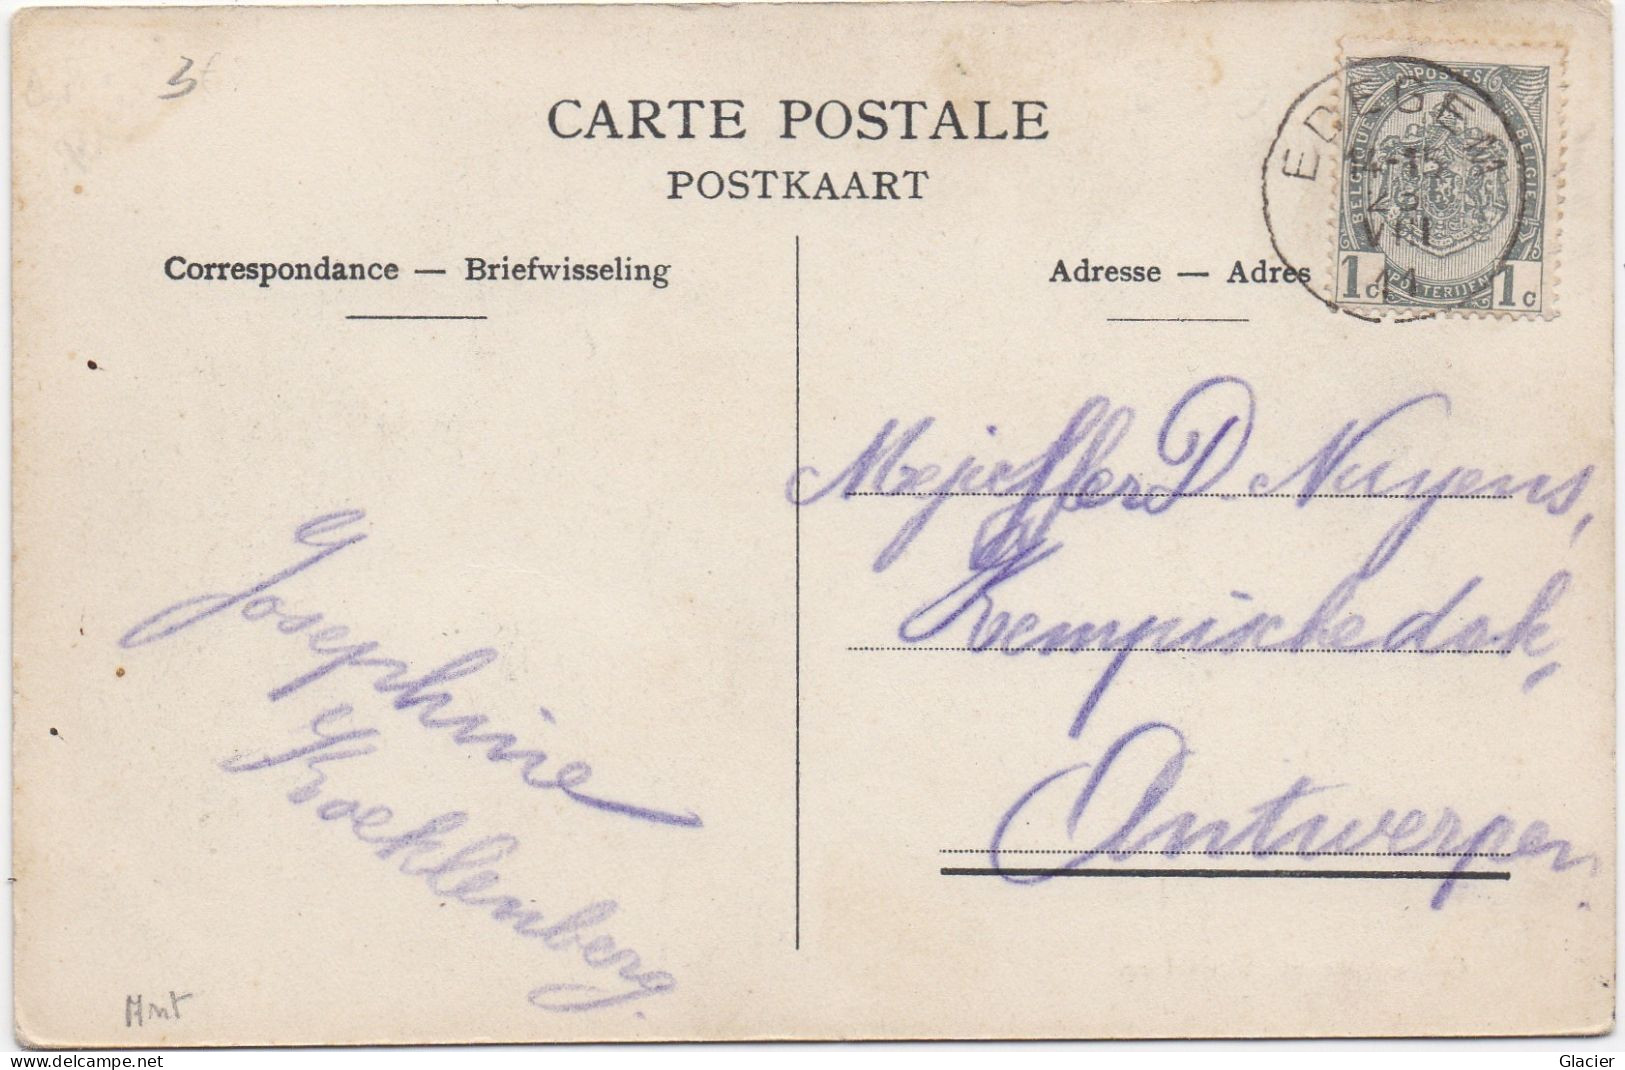 3
CARTE POSTALE
POSTKAART
Correspondance — Briefwisseling
Adresse — Adres
EDEGEM
14-15
23
VII
11
POSTES
BELGIQUE
BELGIE
POSTERIJEN
1c 1c
Mejoffer D. Nuyens,
Kempischedok,
Antwerpen.
Josephine
Koeklenberg.
Ant
www.delcampe.net
Glacier